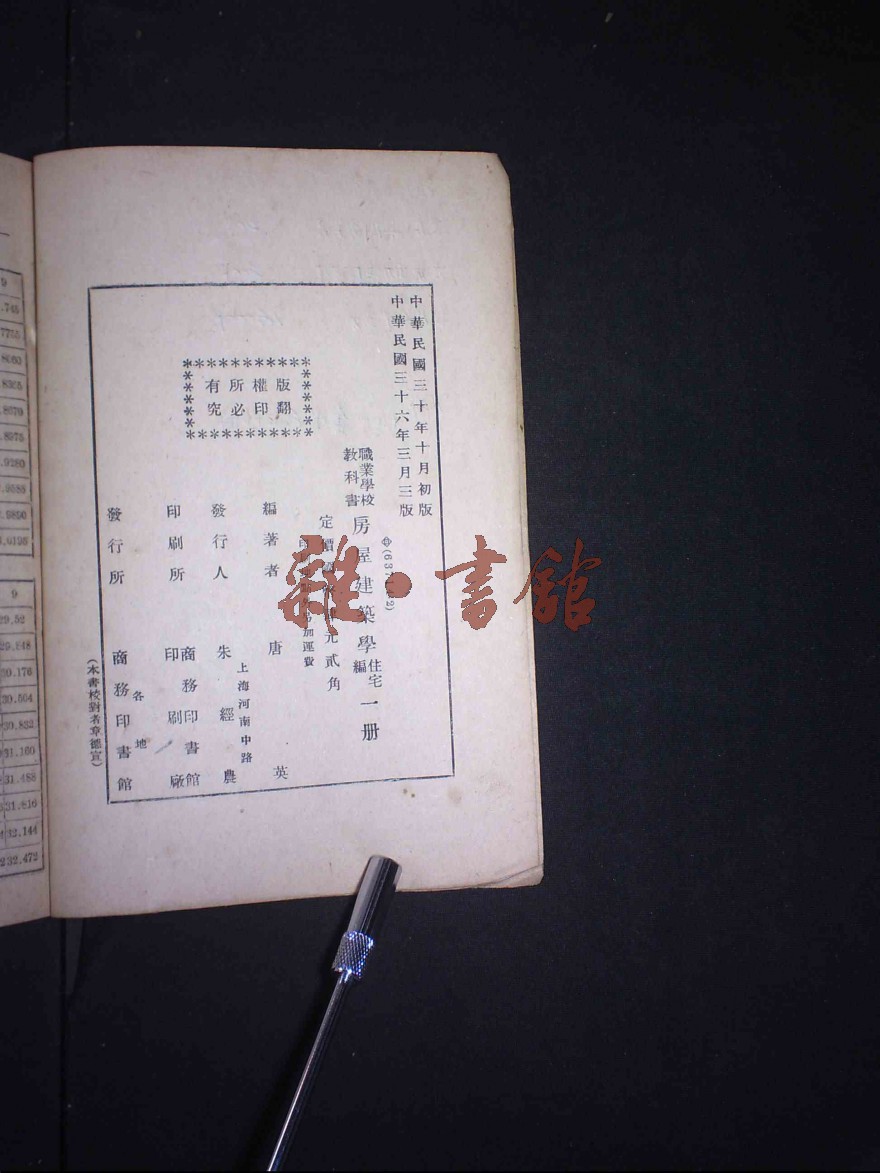 中華民國三十年十月初版
中華民國三十六年三月三版
⊕(637
2)
職業學校
教科書
房屋建築學
住宅
編
一册
定價
元貳角
加運費
版權所有
翻印必究
編著者 唐英
上海河南中路
發行人 朱經農
印刷所 商務印書館
印刷廠
發行所 各地
商務印書館
(本書校對者章德宣)
雜·書館
9
.745
9
29.52
29.848
30.176
30.504
30.832
31.160
31.488
31.816
32.144
32.472